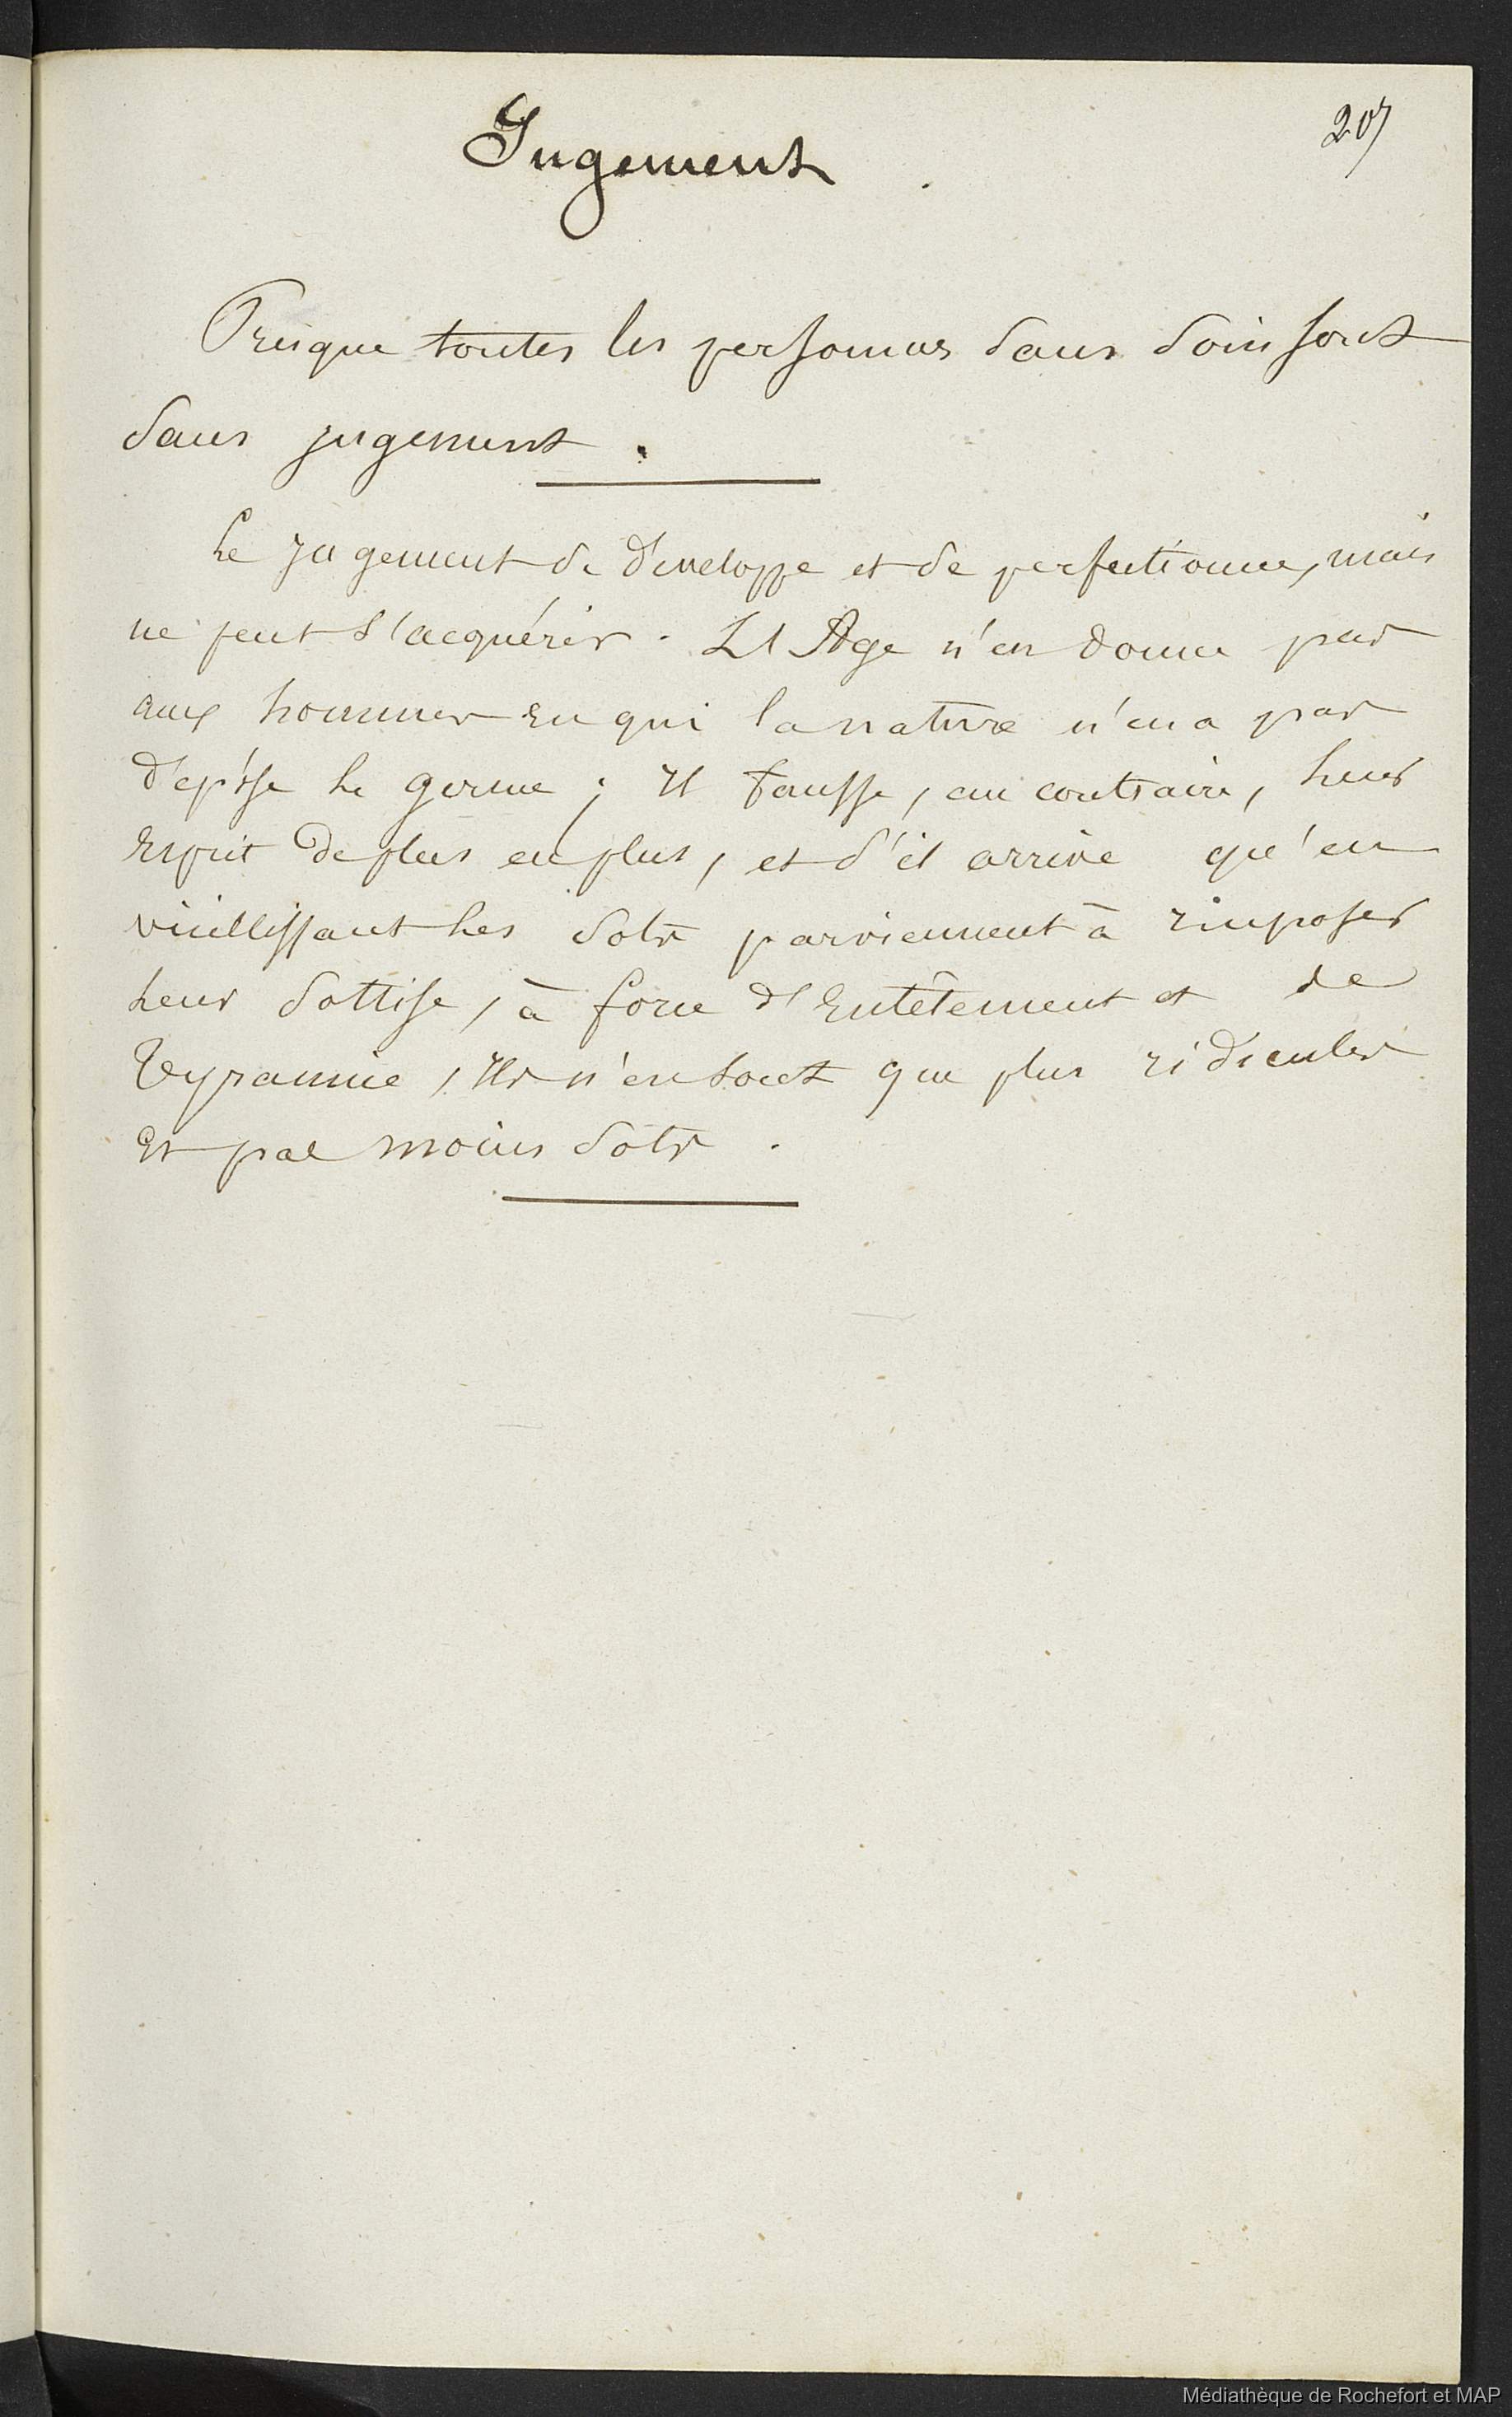 Jugement
207
Presque toutes les personnes sans soin sont
sans jugement.
Le jugement se développe et se perfectionne, mais
ne peut s'acquérir. L'Age n'en donne pas
aux hommes en qui la nature n'en a pas
déposé le germe ; Il fausse, au contraire, leur
esprit de plus en plus, et s'il arrive qu'en
vieillissant les sots parviennent à imposer
leur sottise, à force d'Entêtement et de
Tyrannie, Ils n'en sont que plus ridicules
Et pas moins sots.
Médiathèque de Rochefort et MAP